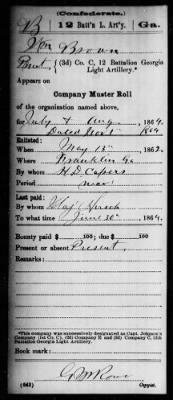 (Confederate.)
B 12 Batt'n L. Art'y. Ga.
Wm Brown
Pvt., (3d) Co. C, 12 Battalion Georgia
Light Artillery.*
Appears on
Company Muster Roll
of the organization named above,
for July & Aug, 1864.
Dated Nov 1 1864
Enlisted:
When May 15, 1862.
Where Franklin Ga
By whom H D Capers
Period war
Last paid:
By whom Maj Hirsch
To what time June 30, 1864.
Bounty paid $ 100; due $ 100
Present or absent Present.
Remarks:
*This company was successively designated as Capt. Johnson's
Company (1st Co. C), (2d) Company E and (3d) Company C, 12th
Battalion Georgia Light Artillery.
Book mark:
G M Rowe
(642) Copyist.